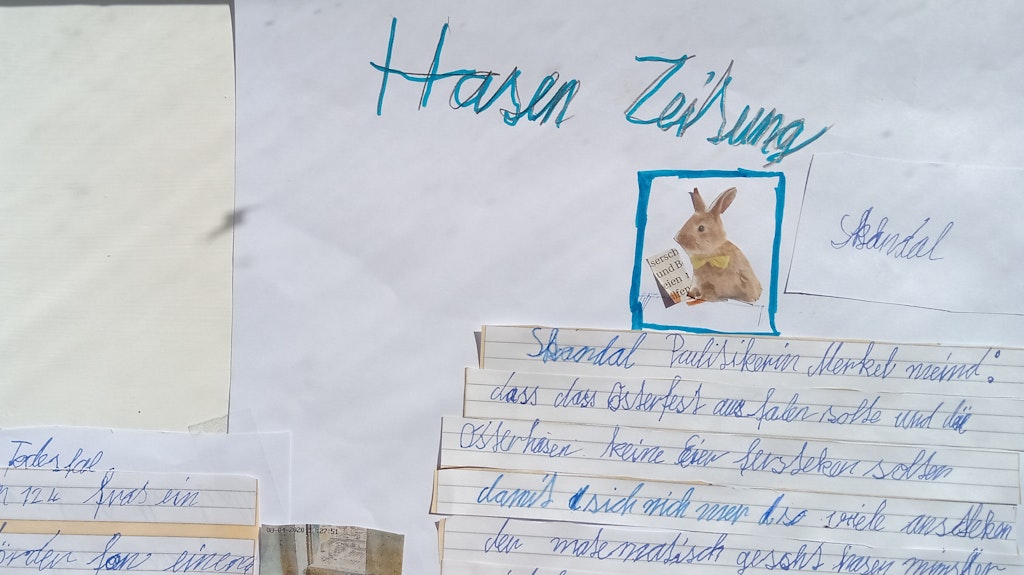 Hasen Zeitung
sersch
und B
eien
Skandal
Skandal Paulitikerin Merkel meind:
dass dass Osterfest aus falen solte und die
Osterhasen keine Eier fersteken solten
damit sich nich mer so viele ansteken
der matematisch
Todesfal
124 fras ein
fon einem